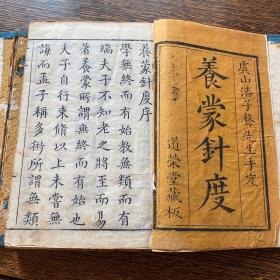 虞山潘子聲先生手定
養蒙針度
道榮堂藏板
養蒙針度序
學無終而有始教無類而有
端夫子不知老之將至而易
著養蒙所謂無終而有始也
夫子自行束脩以上未嘗無
誨而孟子稱多術所謂無類